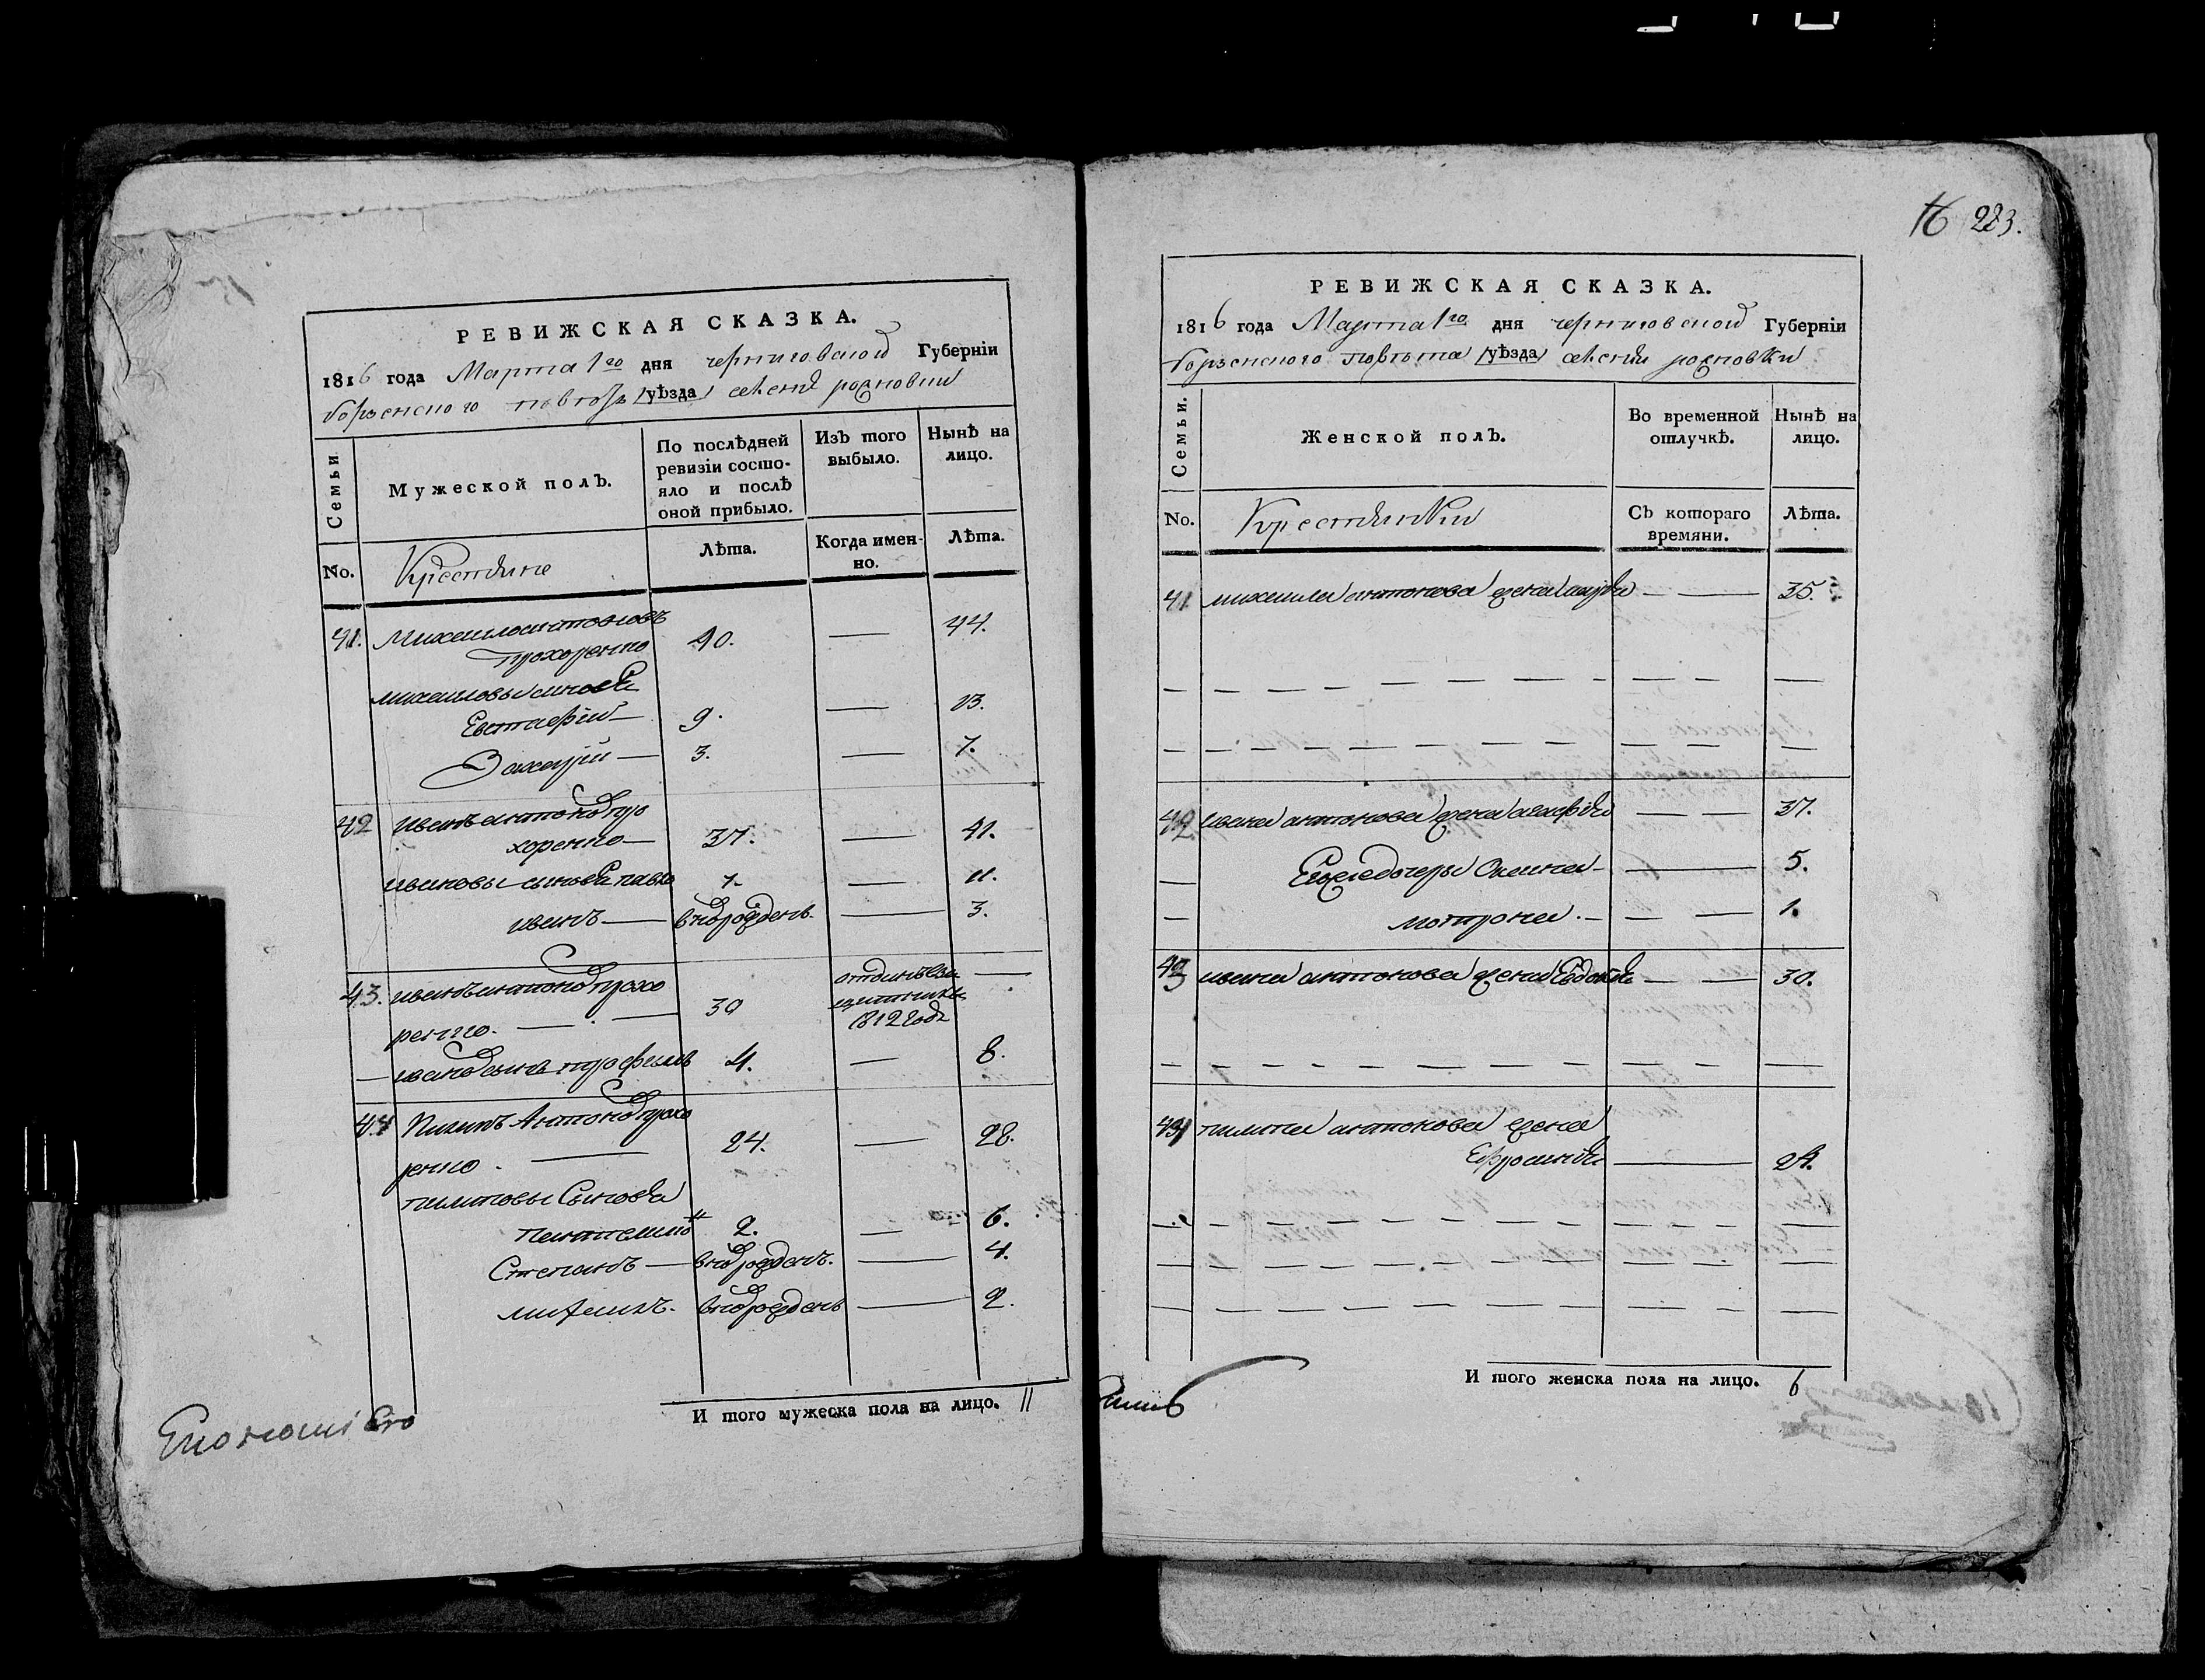 РЕВИЖСКАЯ СКАЗКА.
1816 года Марта 1го дня черниговской Губерніи
борзенского повета уѣзда
Семьи
Мужеской полъ.
По послѣдней ревизіи состояло и послѣ оной прибыло.
Изъ того выбыло.
Нынѣ на лицо.
No.
Крестяне
Лѣта.
Когда именно.
Лѣта.
41. Михаило антоновъ
прохоренко 40. — 44.
михаиловы синовя
Евстафій — 9. — 13.
Захарій — 3. — 7.
42 иванъ антоновъ про
хоренко — 37. — 41.
ивановы синовя павло 7. — 11.
иванъ — вновърожденъ. — 3.
43. иванъ антоновъ прохо
ренко. — 30 1812 годѣ —
— ивановъ синъ трофимъ 4. — 8.
44 Пилипъ Антоновъ прохо
ренко. — 24. — 28.
пилиповы Сыновя
пантелимо н 2. — 6.
Степанъ — вновърожденъ. — 4.
михаилъ. вновърожденъ — 2.
И того мужеска пола на лицо. 11
Економъ Его
16 223.
РЕВИЖСКАЯ СКАЗКА.
1816 года Марта 1го дня черниговской Губерніи
борзенского повета уѣзда
Семьи.
Женской полъ.
Во временной отлучкѣ.
Нынѣ на лицо.
No.
Крестянки
Съ котораго времяни.
Лѣта.
41 михаила антонова жена — — 35.
42 ивана антонова жена агафия — — 37.
— Егожедочеры — 5.
— мотрона. — — — 1.
43 ивана антонова жена Евдокия — — 30.
44 пилипа антонова жена
Ефросиния — 24.
И того женска пола на лицо. 6